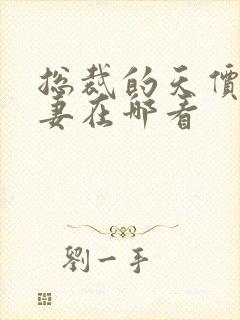 总裁的天價
妻在哪看
劉一手